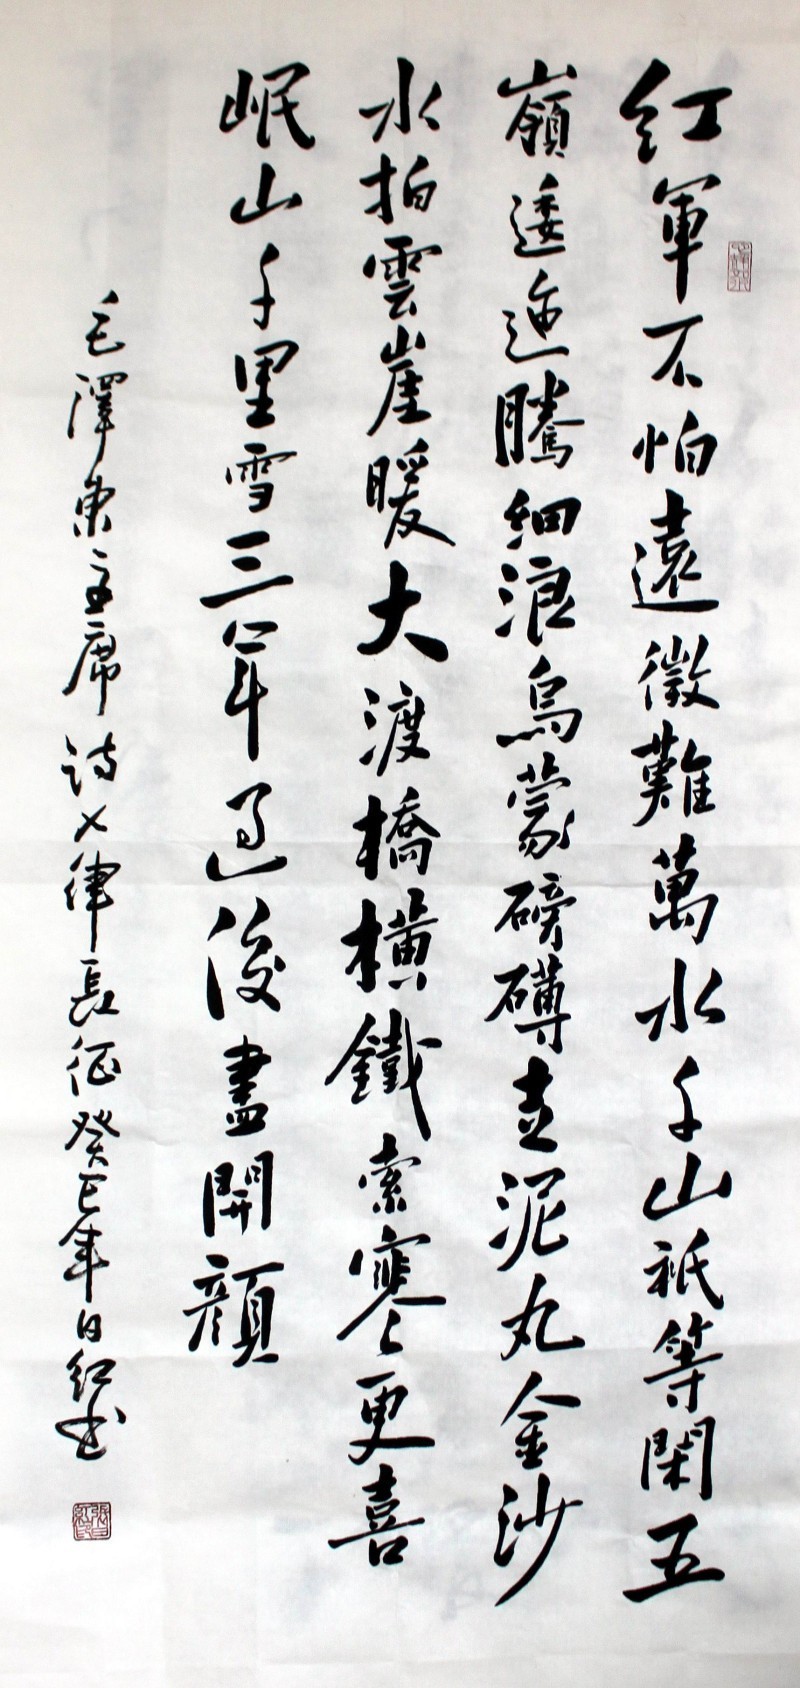 紅軍不怕遠徵難萬水千山祇等閑五
嶺逶迤騰細浪烏蒙磅礴走泥丸金沙
水拍雲崖暖大渡橋橫鐵索寒更喜
岷山千里雪三軍過後盡開顔
毛澤東主席詩七律長征癸巳年日紅书